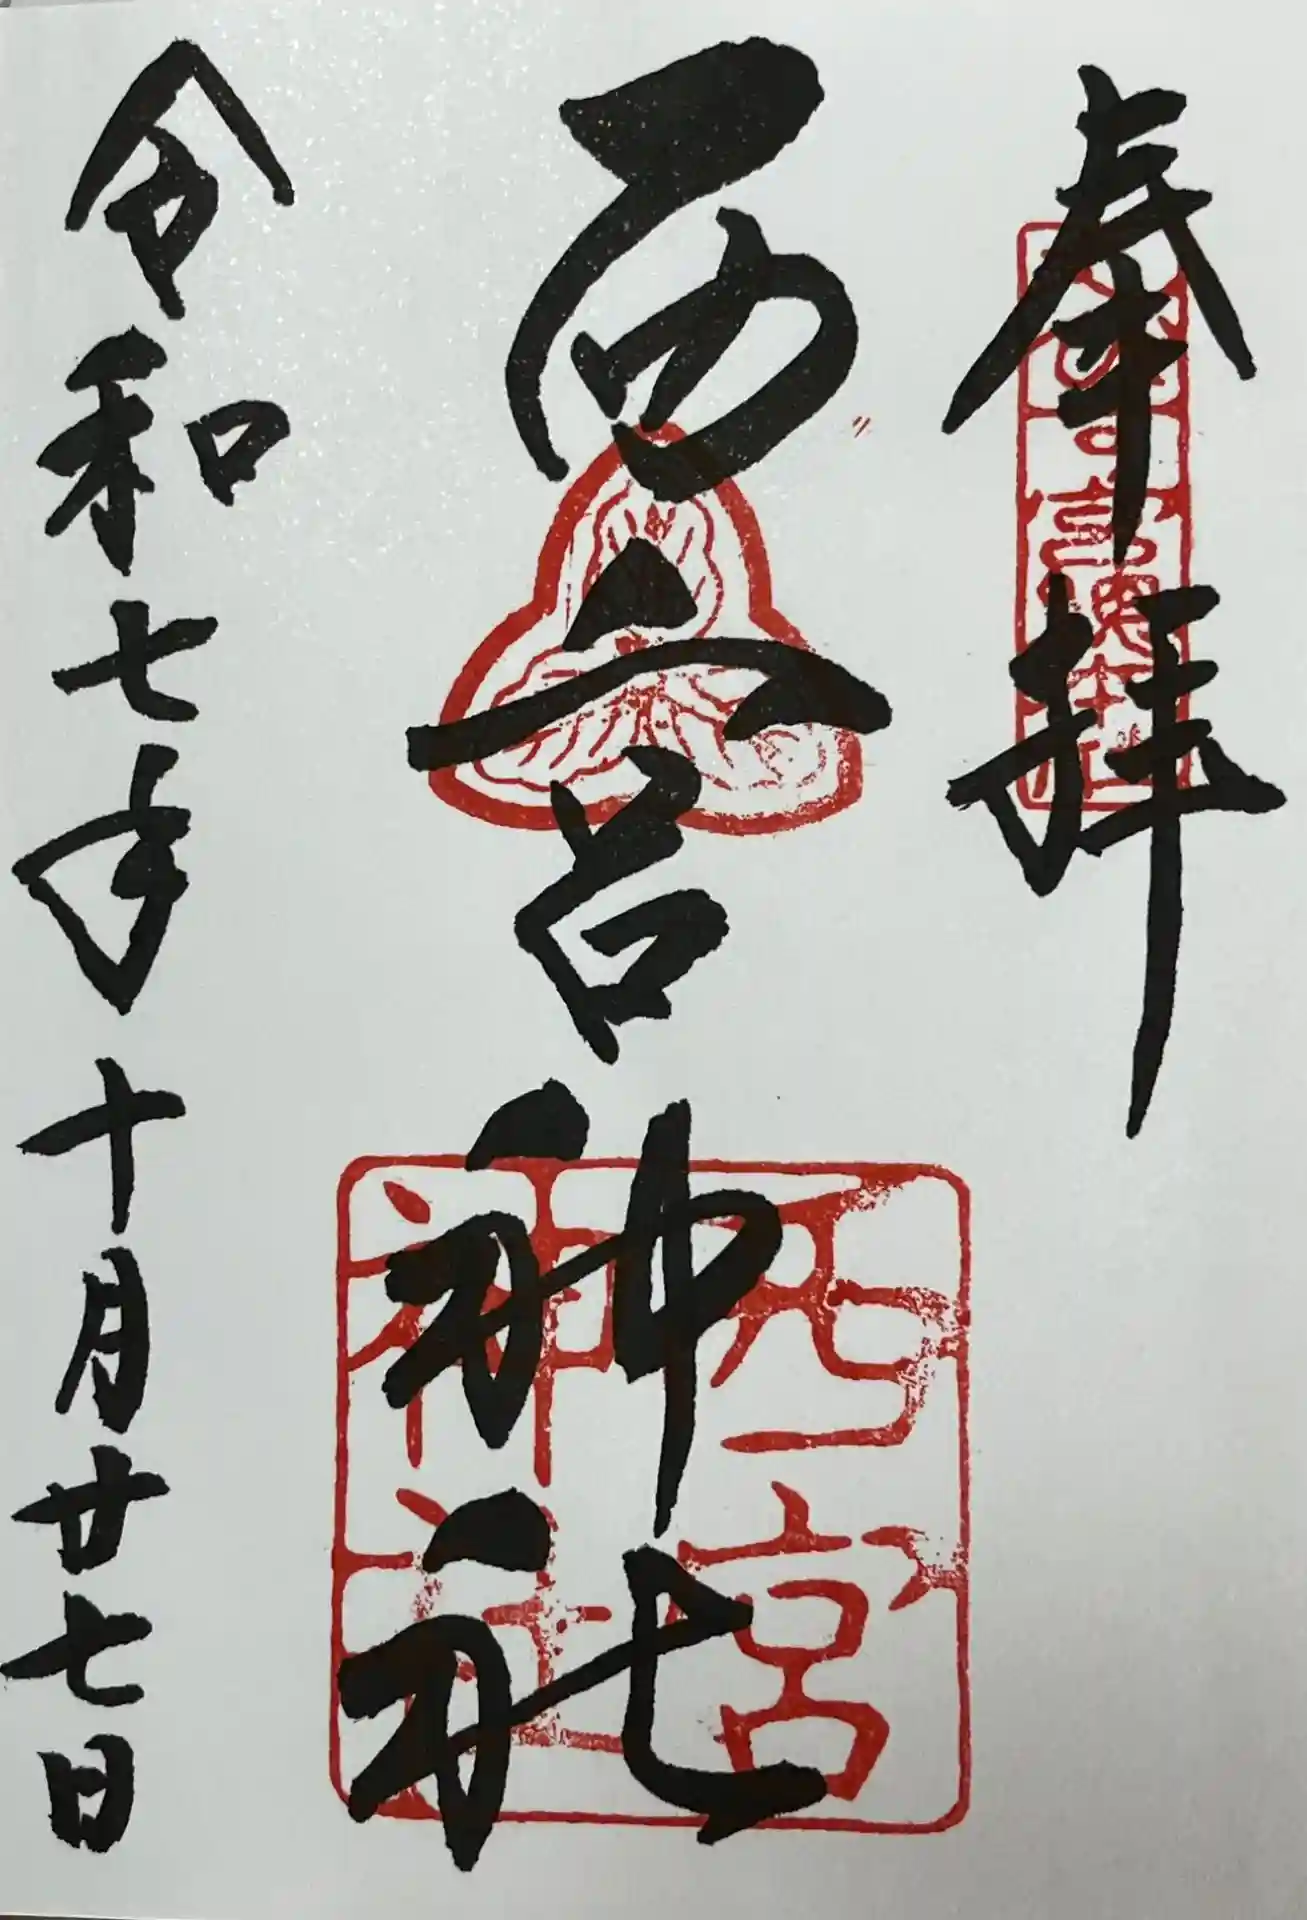 奉拝
西宮神社
西宮神社
令和七年十月廿七日